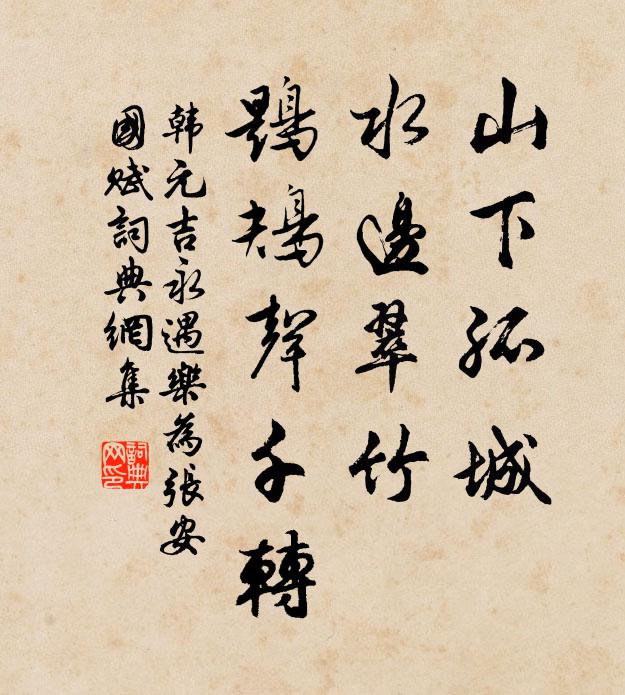 山下孤城
水邊翠竹
鶗鴂聲千轉
韩元吉永遇樂為張安
國賦詞典網集
詞典
网印